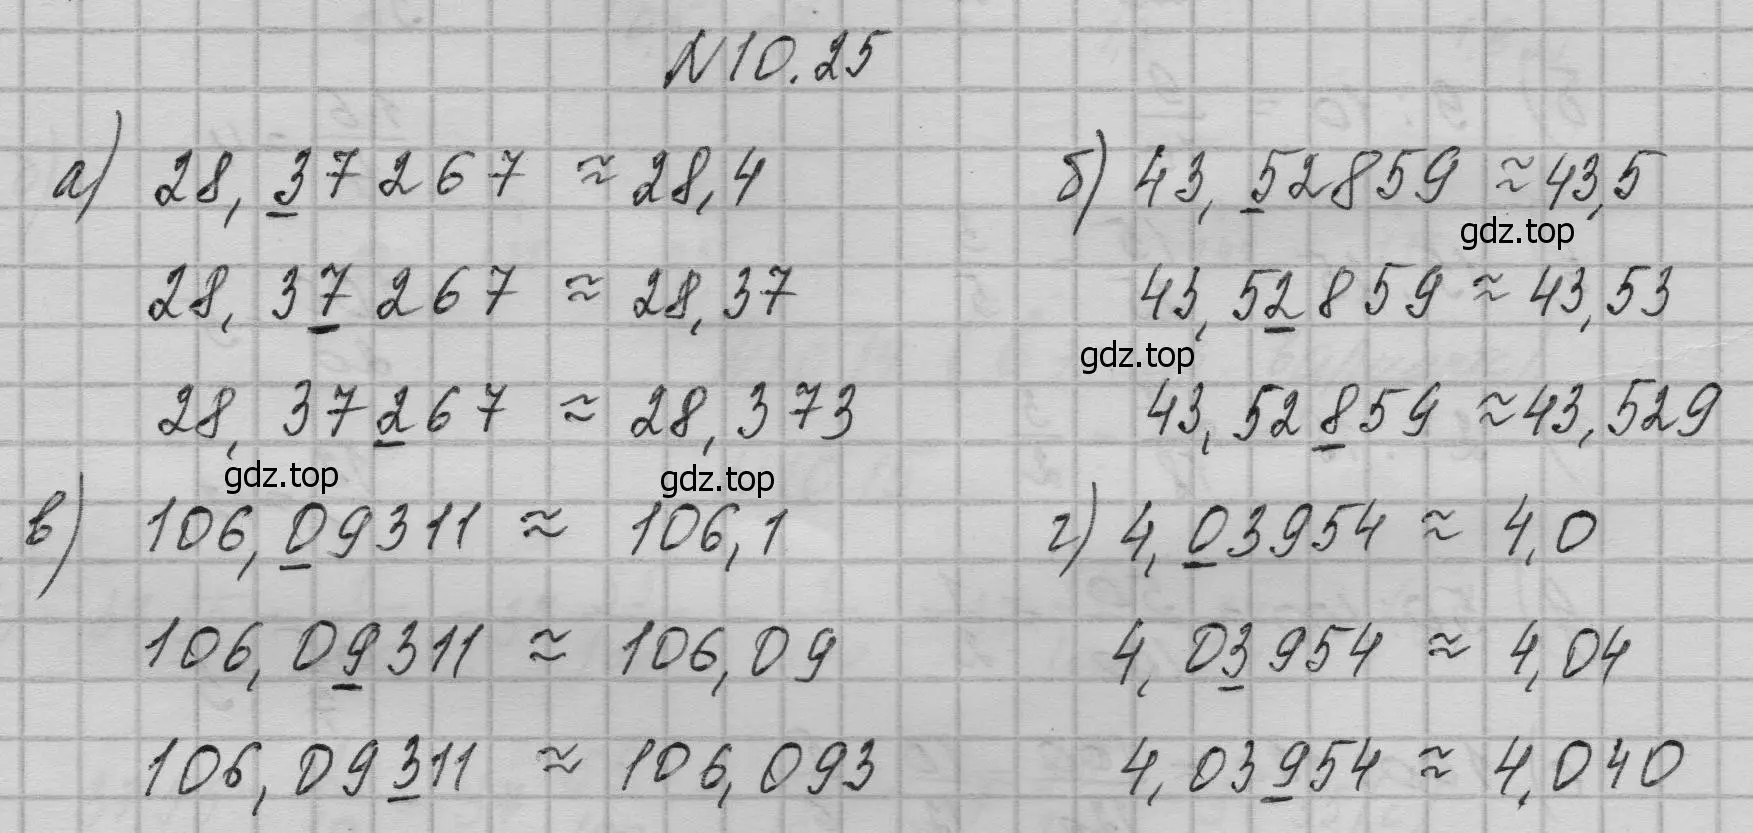 N10.25
а) 28,37267 ≈ 28,4
28,37267 ≈ 28,37
28,37267 ≈ 28,373
б) 43,52859 ≈ 43,5
gdz.top
43,52859 ≈ 43,53
gdz.top
43,52859 ≈ 43,529
gdz.top
gdz.top
в) 106,09311 ≈ 106,1
106,09311 ≈ 106,09
106,09311 ≈ 106,093
г) 4,03954 ≈ 4,0
4,03954 ≈ 4,04
4,03954 ≈ 4,040